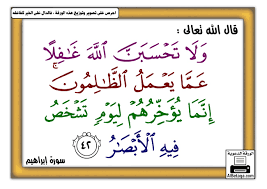 احرص على تصوير وتوزيع هذه الورقة ، فالدال على الخير كفاعله
قال الله تعالى :
وَلَا تَحْسَبَنَّ اللَّهَ غَافِلًا
عَمَّا يَعْمَلُ الظَّالِمُونَ ۚ
إِنَّمَا يُؤَخِّرُهُمْ لِيَوْمٍ تَشْخَصُ
فِيهِ الْأَبْصَارُ ٤٢
سورة إبراهيم
الورقة الدعوية